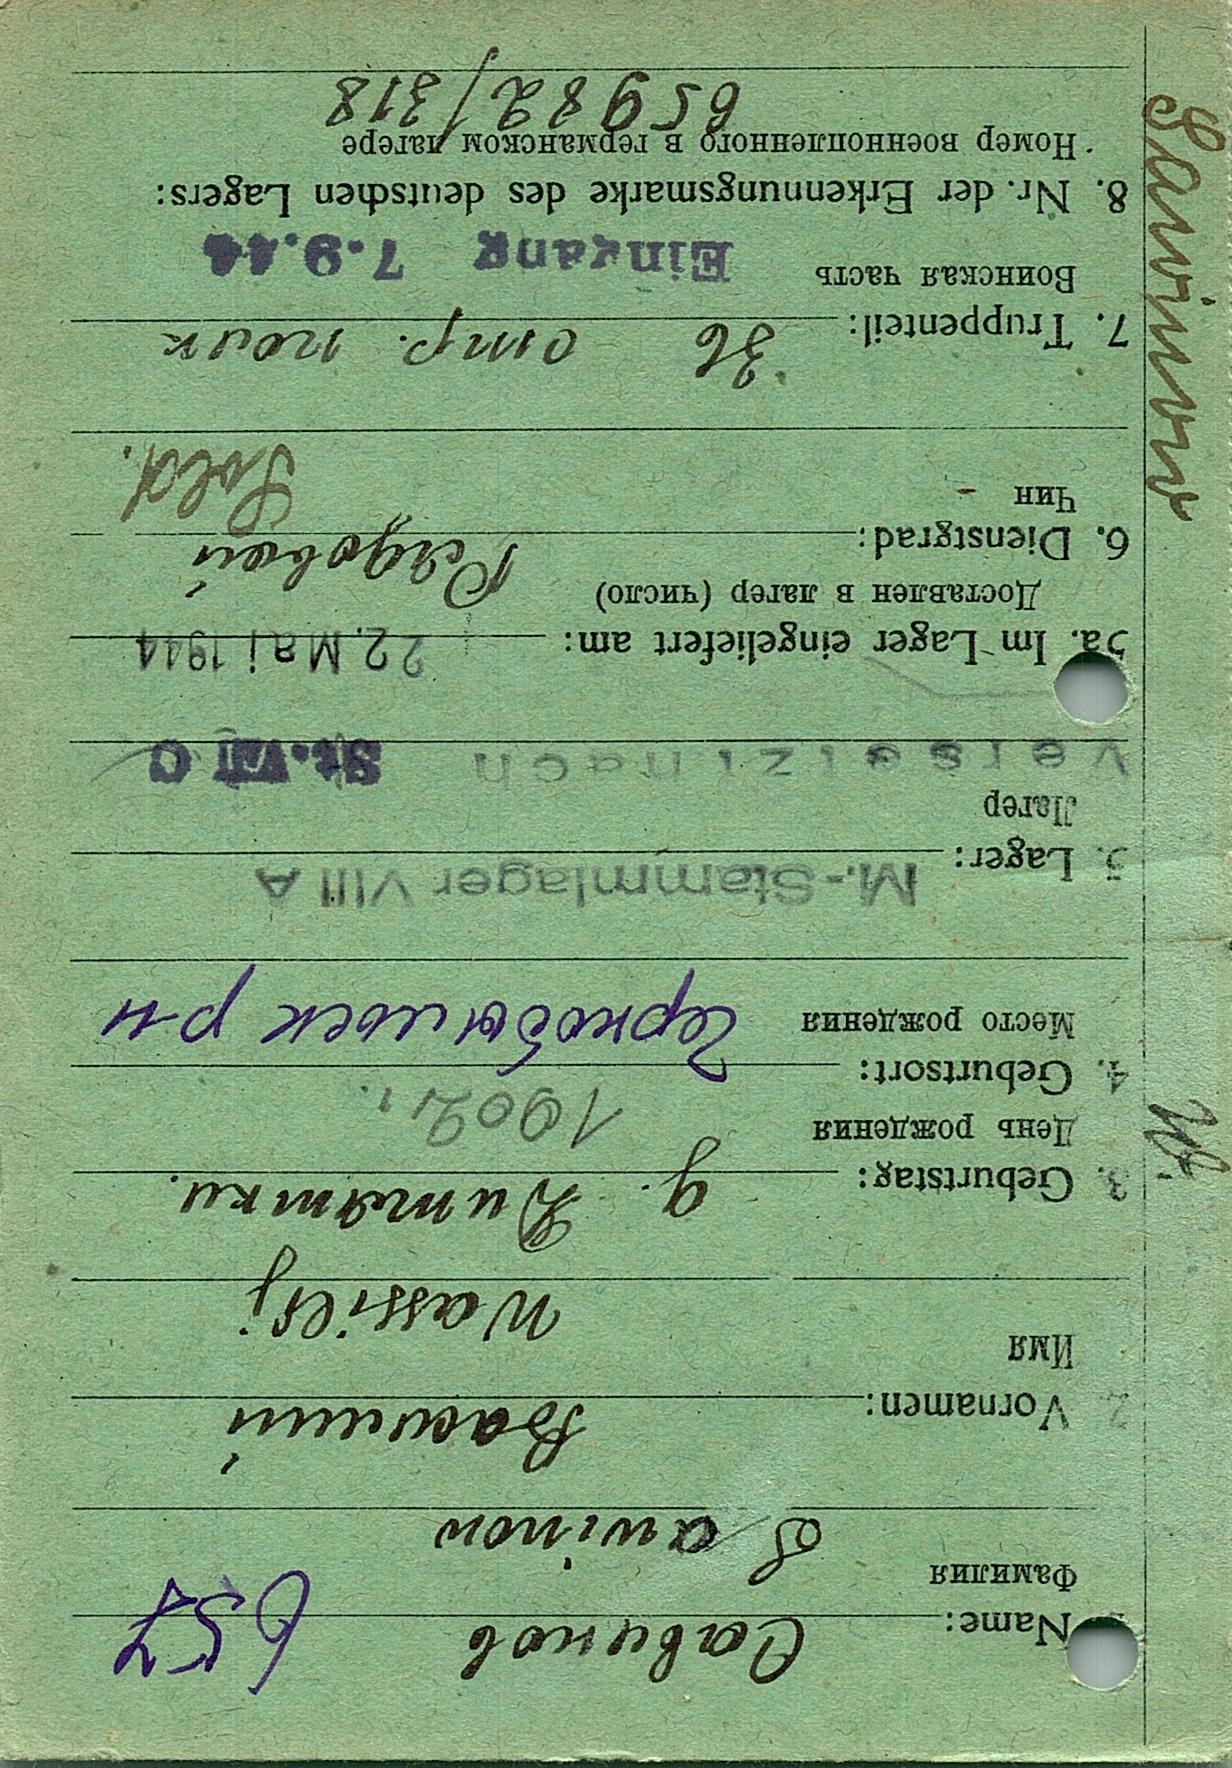 Sawinow
W.
657
1. Name: Савинов
Фамилия
Sawinow
2. Vornamen: Василий
Имя
Wassilij
3. Geburtstag: д. Дитятки.
День рождения 1902 г.
4. Geburtsort:
Место рождения Чернобыльск р-н
5. Lager: M.-Stammlager VIII A
Лагер
versetzt nach St. VIII C
5a. Im Lager eingeliefert am: 22. Mai 1944
Доставлен в лагер (число)
6. Dienstgrad: Рядовой
Чин Sold.
7. Truppenteil: 36 стр. полк
Воинская часть Eingang 7.9.44
8. Nr. der Erkennungsmarke des deutschen Lagers:
Номер военнопленного в германском лагере
65982/318